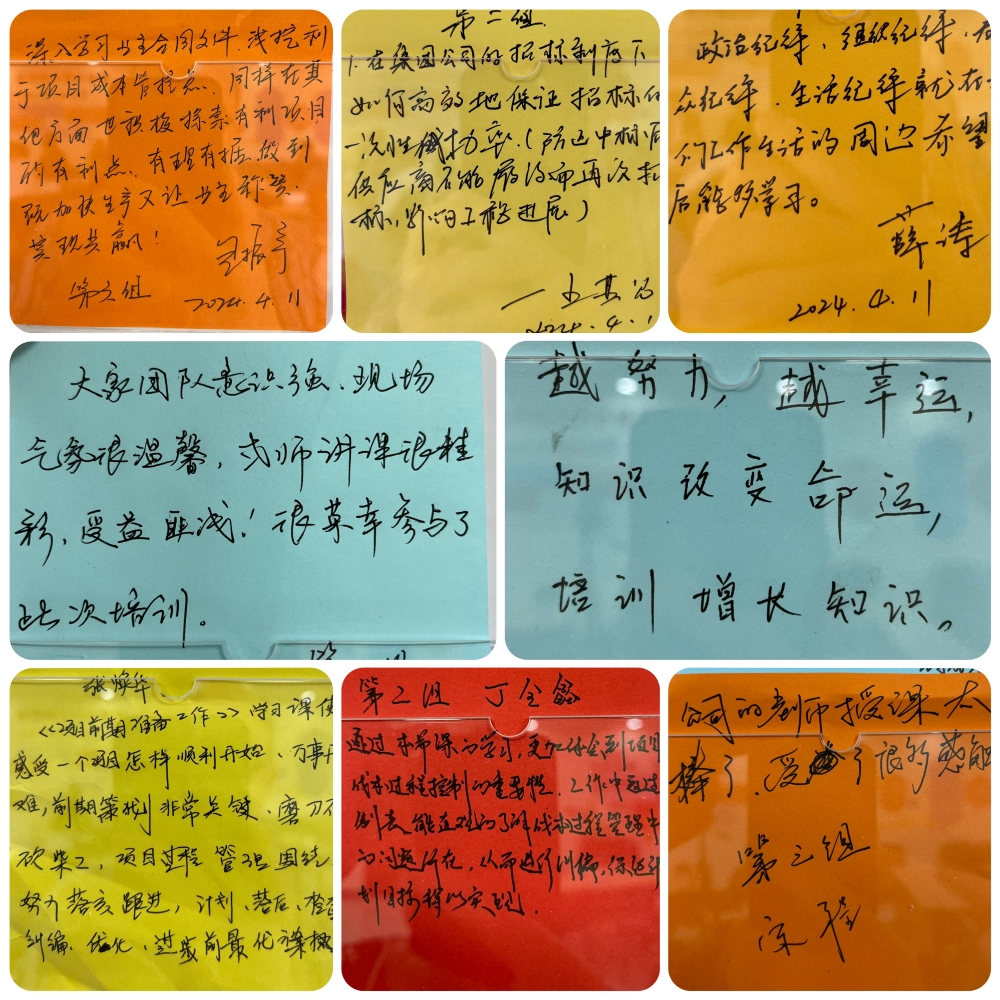 深入学习业主合同文件，浅挖利
于项目成本管控点，同样在其
他方面也积极探索有利项目
的有利点，有理有据做到
既加快生产又让业主称赞，
实现共赢！
第六组
2024.4.11
第二组
1.在集团公司的招标制度下
如何高效地保证招标的
一次性成功率（防止中标后
供应商不能履约而再次招
标，影响工程进展）
2024.4.1
政治纪律、组织纪律、
众纪律、生活纪律就在
们工作生活的周边希望
后能多学习。
薛涛
2024.4.11
大家团队意识强、现场
气氛很温馨，老师讲课很精
彩，受益匪浅！很荣幸参与了
此次培训。
越努力，越幸运，
知识改变命运，
培训增长知识。
张耀华
《项目前期准备工作》学习课使
感受一个项目怎样顺利开始，万事开
难，前期策划非常关键，磨刀不
砍柴工，项目过程管理围绕
努力落实跟进，计划、落后、检查
纠偏、优化、进步前最优方案
第二组 丁全鑫
通过本节课的学习，更加体会到项目
成本过程控制的重要性，工作中通过
制表能直观的了解成本过程管理中
的问题所在，从而进行纠偏，保证计
划目标得以实现。
公司的老师授课太
棒了，受了很多感触
第三组
宋程